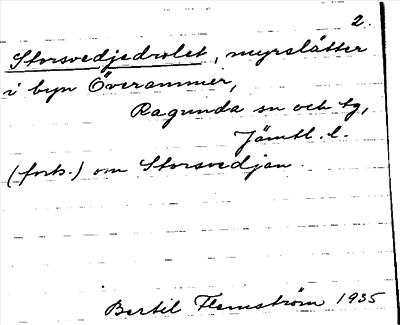 2.
Storsvedjedrolet, myrslåtter
i byn Överammer,
Ragunda sn och tg,
Jämtl. l.
(forts.) om Storsvedjan.
Bertil Flemström 1935